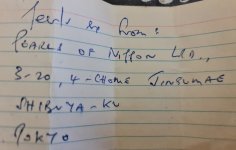 from:
PEARLS OF NIPPON LTD.,
3-20, 4-CHOME JINGUMAE
SHIBUYA-KU
TOKYO